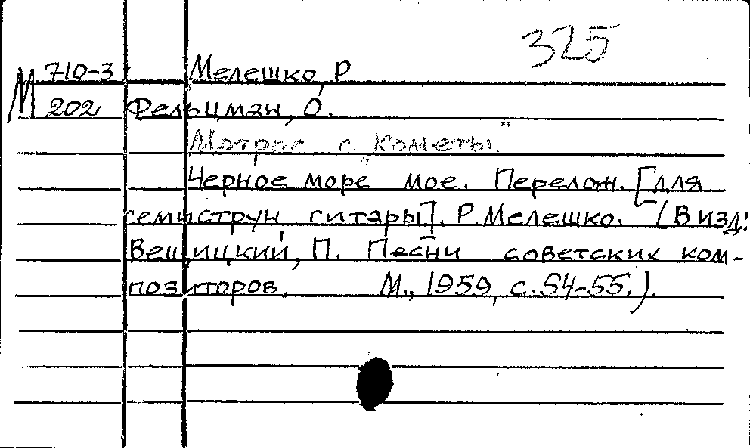 325
М 710-3 Мелешко, Р
202 Фельцман, О.
Матрос с „Кометы"
Черное море мое. Перелож. [для
семиструн гитары]. Р. Мелешко. (В изд:
Вещицкий, П. Песни советских ком-
позиторов. М., 1959, с. 54-55.).